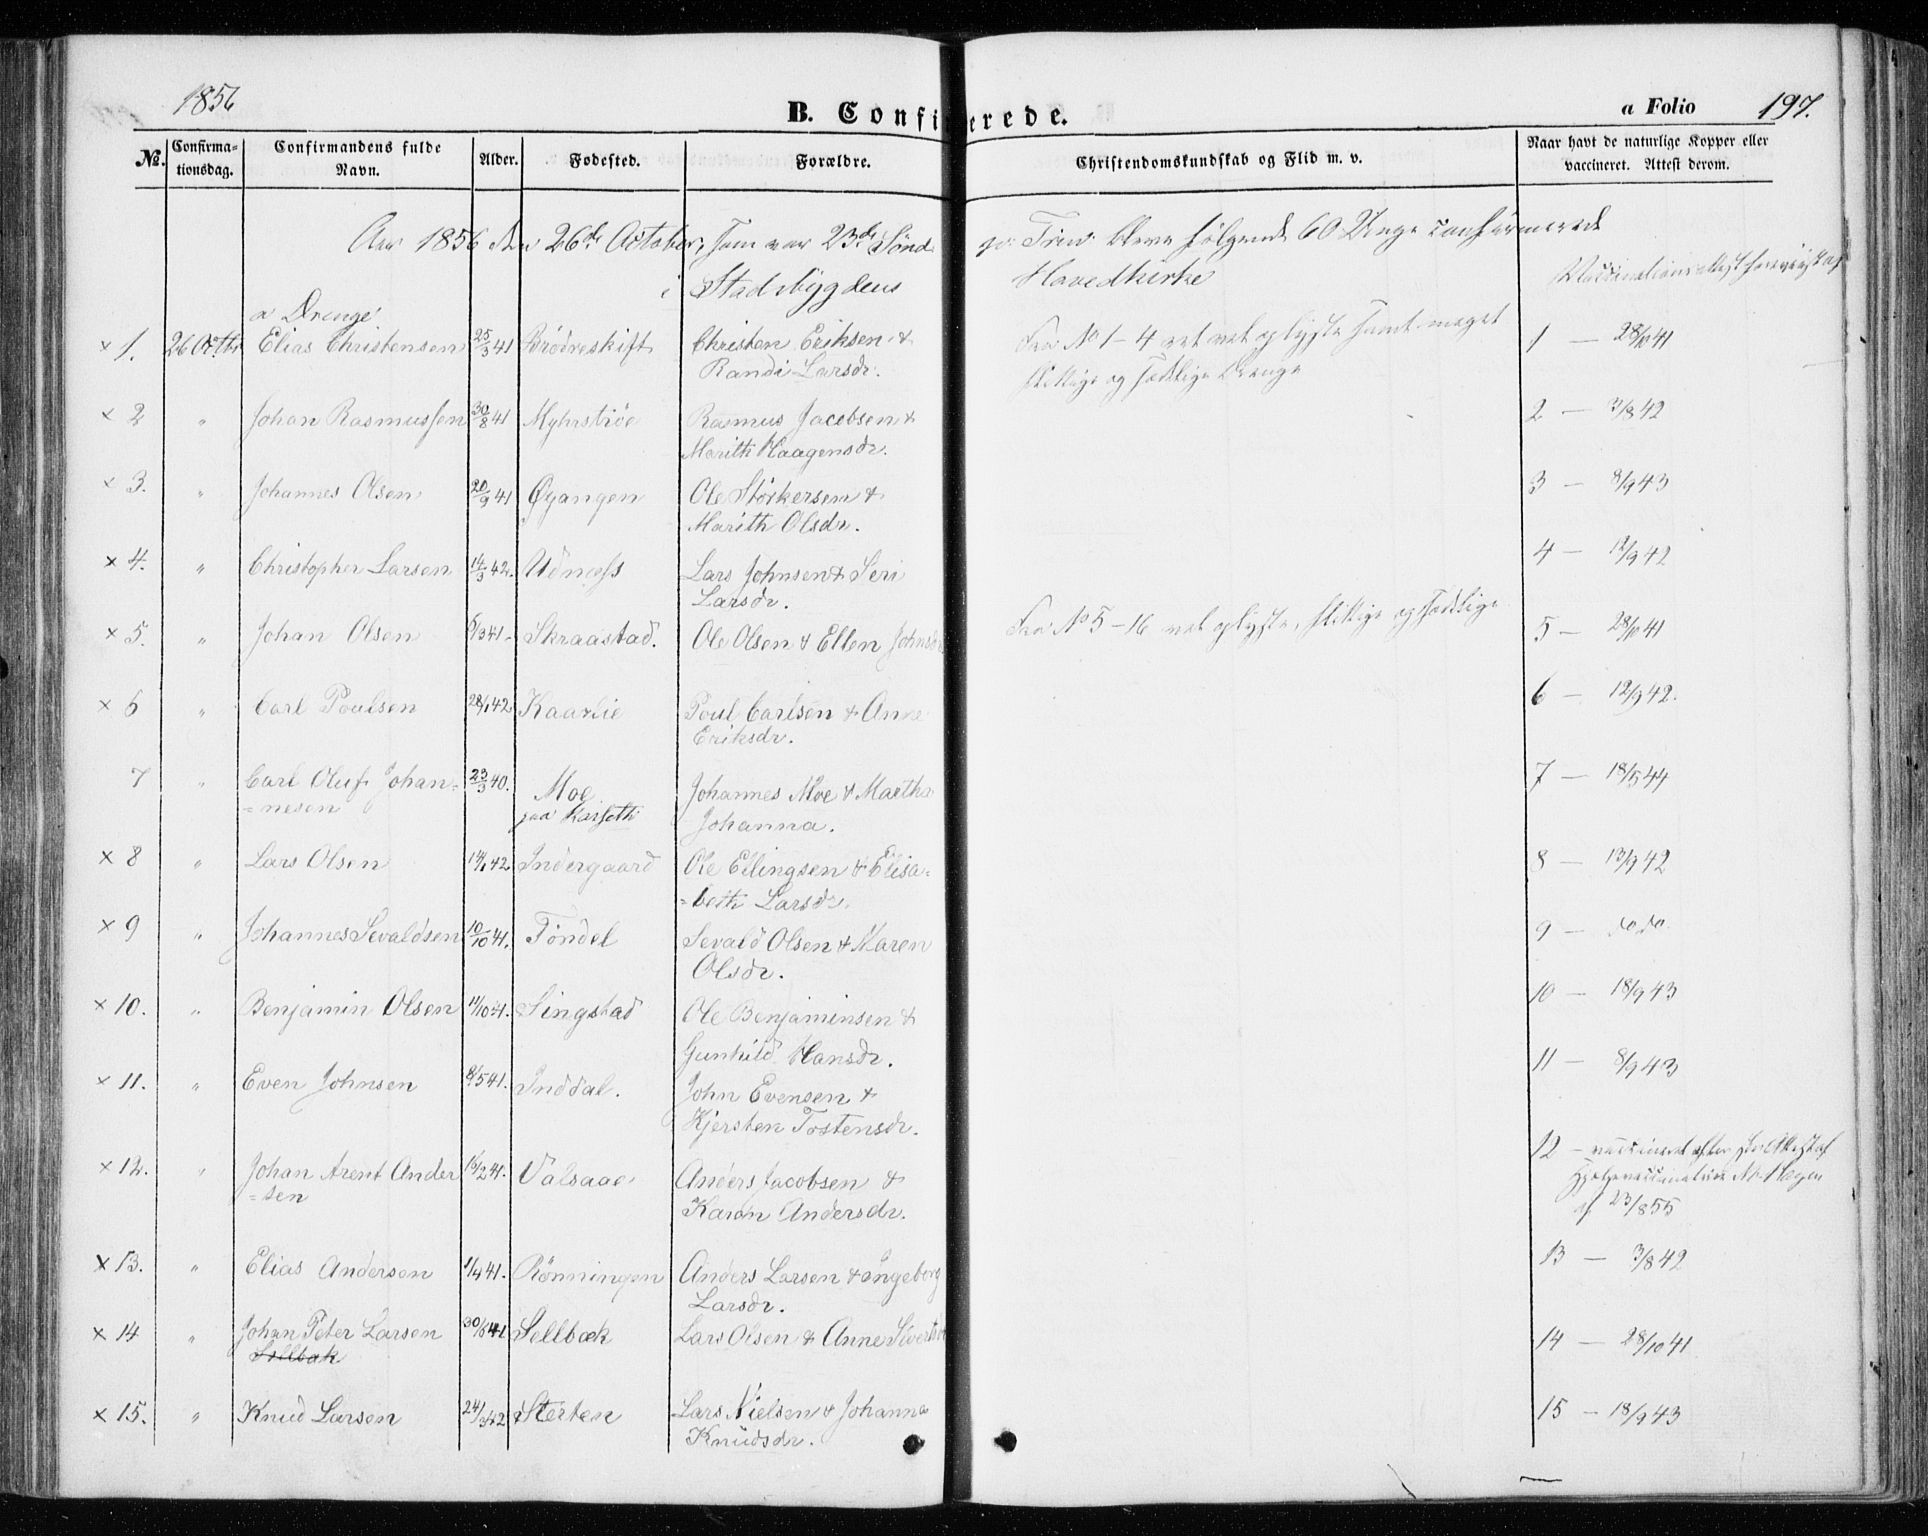 1856
B. Confirmerede.
a Folio 197.
No.
Confirma-
tionsdag.
Confirmandens fulde
Navn.
Alder.
Fødested.
Forældre.
Christendomskundskab og Flid m. v.
Naar havt de naturlige Kopper eller
vaccineret. Attest derom.
Aar 1856 den 26de October, som var 23de Sønd
p: Trin: bleve følgende 60 Unge confirmerede
i Stadsbygdens
Hovedkirke
Vaccinationsattest foreviist af
a Drenge
× 1. 26 Octbr Elias Christensen 25/3 41 Brödreskift Christen Eriksen &
Randi Larsdr.
Fra No 1-4 vel oplyste samt meget
flittige og sædelige Drenge
1 — 28/10 41
× 2 " Johan Rasmussen 30/8 41 Myhrströe Rasmus Jacobsen &
Marith Haagensdr.
2 — 3/8 42
× 3. " Johannes Olsen 20/9 41 Øyangen Ole Störkersen &
Marith Olsdr.
3 — 8/9 43
× 4. " Christopher Larsen 14/3 42. Udnæss Lars Johnsen & Seri
Larsdr.
4 — 12/9 42
× 5. " Johan Olsen 6/3 41. Skraastad. Ole Olsen & Ellen Johnsdr
Fra No 5-16 vel oplyste, flittige og sædelige
5 — 28/10 41
× 6 " Carl Poulsen 28/1 42 Kaarlie Poul Carlsen & Anne
Eriksdr.
6 — 12/9 42.
7 " Carl Oluf Johan=
=nesen 23/3 40. Moe
paa Karseth Johannes Moe & Martha
Johanna.
7 — 18/5 44
× 8 " Lars Olsen 14/1 42 Indergaard Ole Ellingsen & Elisa=
=beth Larsdr.
8 — 13/9 42
× 9 " Johannes Sevaldsen 10/10 41. Töndel Sevald Olsen & Maren
Olsdr.
9 — do do.
× 10. " Benjamin Olsen 11/10 41. Singstad Ole Benjaminsen &
Gunhild Hansdr.
10 — 18/9 43
× 11. " Even Johnsen 8/5 41. Inddal. John Evensen &
Kjersten Tostensdr.
11 — 8/9 43
× 12. " Johan Arent Ander
=sen 16/2 41. Valsaae Anders Jacobsen &
Karen Andersdr.
12 — vaccineret efter Attest af
Hjelpevaccinateur Hagen
af 23/8 55
× 13. " Elias Andersen 1/4 41. Rönningen Anders Larsen & Ingeborg
Larsdr.
13 — 3/8 42
× 14 " Johan Peter Larsen
Sellbæk 30/6 41 Sellbæk Lars Olsen & Anne Sivertsdr
14 — 28/10 41
× 15. " Knud Larsen 24/3 42 Sterten Lars Nielsen & Johanna
Knudsdr.
15 — 18/9 43